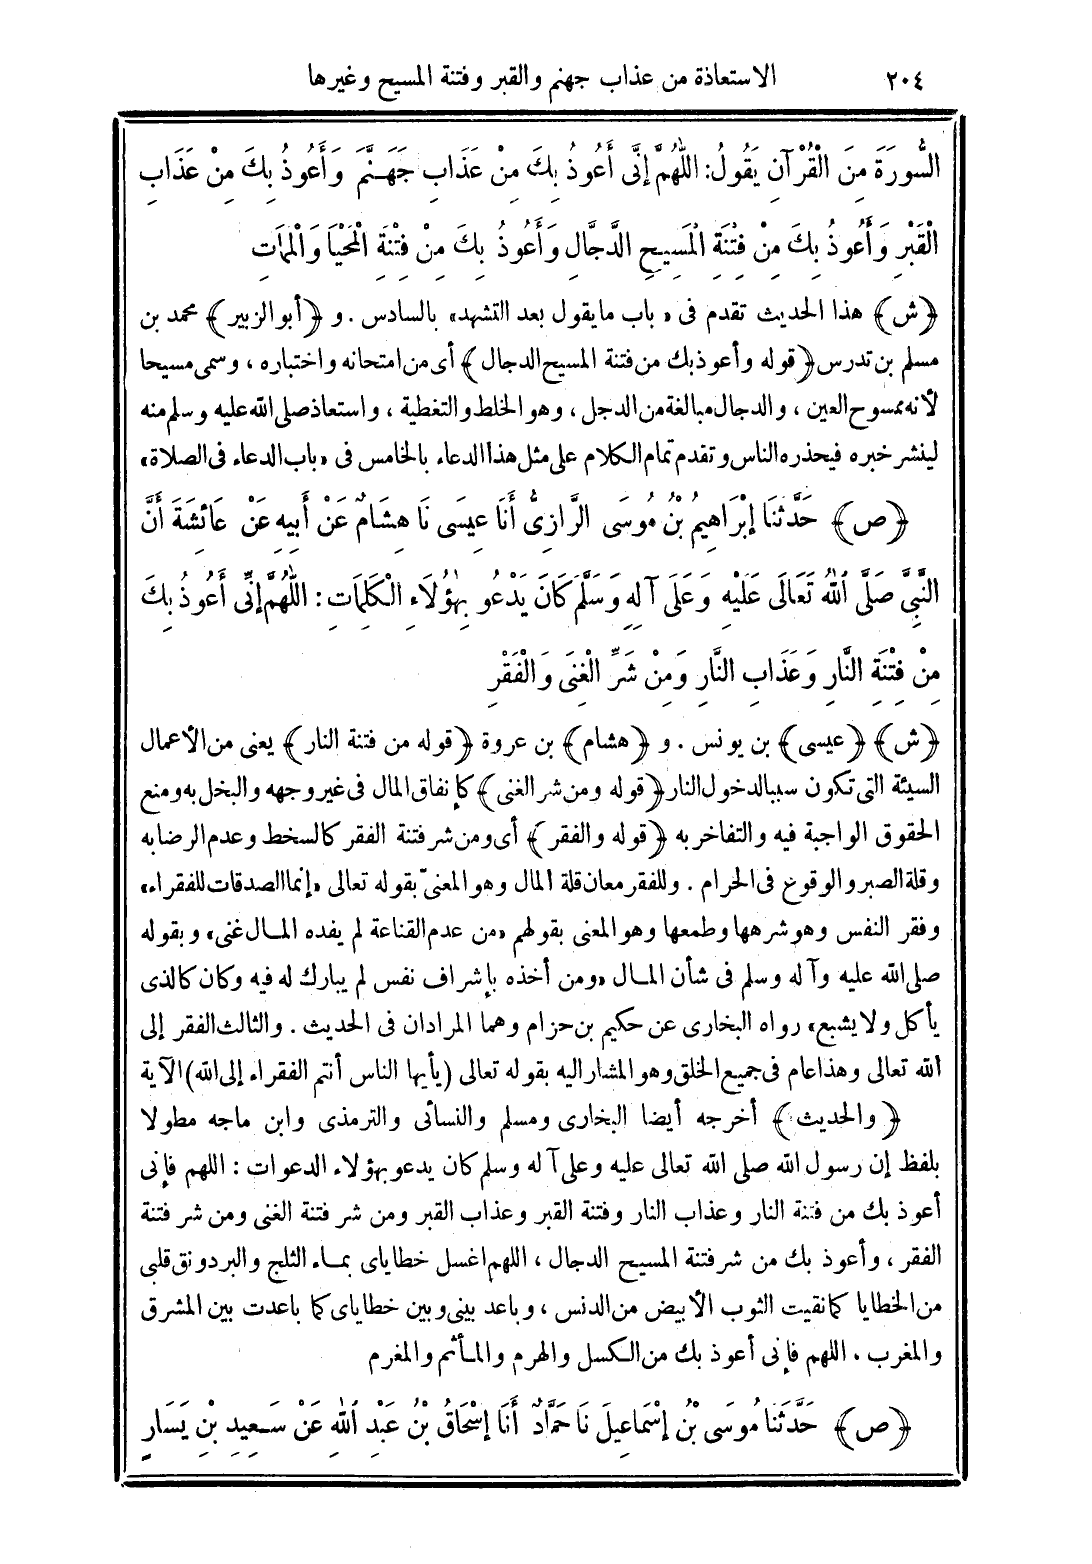 ٢٠٤ الاستعاذة من عذاب جهنم والقبر وفتنة المسيح وغيرها
السُّورَةَ مِنَ الْقُرْآنِ يَقُولُ: اللّٰهُمَّ إِنِّى أَعُوذُ بِكَ مِنْ عَذَابِ جَهَنَّمَ وَأَعُوذُ بِكَ مِنْ عَذَابِ
الْقَبْرِ وَأَعُوذُ بِكَ مِنْ فِتْنَةِ الْمَسِيحِ الدَّجَّالِ وَأَعُوذُ بِكَ مِنْ فِتْنَةِ الْمَحْيَا وَالْمَمَاتِ
﴿ش﴾ هذا الحديث تقدم فى «باب ما يقول بعد التشهد» بالسادس . و ﴿أبو الزبير﴾ محمد بن
مسلم بن تدرس ﴿قوله وأعوذ بك من فتنة المسيح الدجال﴾ أى من امتحانه واختباره ، وسمى مسيحا
لأنه ممسوح العين ، والدجال مبالغة من الدجل ، وهو الخلط والتغطية ، واستعاذ صلى الله عليه وسلم منه
لينشر خبره فيحذره الناس وتقدم تمام الكلام على مثل هذا الدعاء بالخامس فى «باب الدعاء فى الصلاة»
﴿ص﴾ حَدَّثَنَا إِبْرَاهِيمُ بْنُ مُوسَى الرَّازِىُّ أَنَا عِيسَى نَا هِشَامٌ عَنْ أَبِيهِ عَنْ عَائِشَةَ أَنَّ
النَّبِىَّ صَلَّى اللّٰهُ تَعَالَى عَلَيْهِ وَعَلَى آلِهِ وَسَلَّمَ كَانَ يَدْعُو بِهٰؤُلَاءِ الْكَلِمَاتِ : اللّٰهُمَّ إِنِّى أَعُوذُ بِكَ
مِنْ فِتْنَةِ النَّارِ وَعَذَابِ النَّارِ وَمِنْ شَرِّ الْغِنَى وَالْفَقْرِ
﴿ش﴾ ﴿عيسى﴾ بن يونس . و ﴿هشام﴾ بن عروة ﴿قوله من فتنة النار﴾ يعنى من الأعمال
السيئة التى تكون سببا لدخول النار ﴿قوله ومن شر الغنى﴾ كإنفاق المال فى غير وجهه والبخل به ومنع
الحقوق الواجبة فيه والتفاخر به ﴿قوله والفقر﴾ أى ومن شر فتنة الفقر كالسخط وعدم الرضا به
وقلة الصبر والوقوع فى الحرام . وللفقر معان قلة المال وهو المعنىّ بقوله تعالى «إنما الصدقات للفقراء»
وفقر النفس وهو شرهها وطمعها وهو المعنى بقولهم «من عدم القناعة لم يفده المال غنى» وبقوله
صلى الله عليه وآله وسلم فى شأن المال «ومن أخذه بإشراف نفس لم يبارك له فيه وكان كالذى
يأكل ولا يشبع» رواه البخارى عن حكيم بن حزام وهما المرادان فى الحديث . والثالث الفقر إلى
الله تعالى وهذا عام فى جميع الخلق وهو المشار إليه بقوله تعالى (يأيها الناس أنتم الفقراء إلى الله) الآية
﴿والحديث﴾ أخرجه أيضا البخارى ومسلم والنسائى والترمذى وابن ماجه مطولا
بلفظ إن رسول الله صلى الله تعالى عليه وعلى آله وسلم كان يدعو بهؤلاء الدعوات : اللهم فإنى
أعوذ بك من فتنة النار وعذاب النار وفتنة القبر وعذاب القبر ومن شر فتنة الغنى ومن شر فتنة
الفقر ، وأعوذ بك من شر فتنة المسيح الدجال ، اللهم اغسل خطاياى بماء الثلج والبرد ونق قلبى
من الخطايا كما نقيت الثوب الأبيض من الدنس ، وباعد بينى وبين خطاياى كما باعدت بين المشرق
والمغرب . اللهم فإنى أعوذ بك من الكسل والهرم والمأثم والمغرم
﴿ص﴾ حَدَّثَنَا مُوسَى بْنُ إِسْمَاعِيلَ نَا حَمَّادٌ أَنَا إِسْحَاقُ بْنُ عَبْدِ اللّٰهِ عَنْ سَعِيدِ بْنِ يَسَارٍ